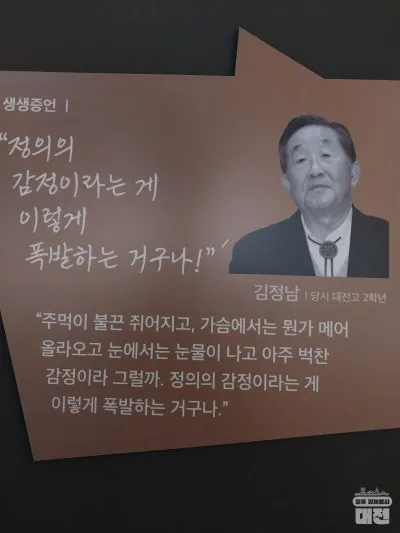 생생증언 |
“정의의
감정이라는 게
이렇게
폭발하는 거구나!”
김정남 | 당시 대전고 2학년
“주먹이 불끈 쥐어지고, 가슴에서는 뭔가 메어
올라오고 눈에서는 눈물이 나고 아주 벅찬
감정이라 그럴까. 정의의 감정이라는 게
이렇게 폭발하는 거구나.”
대전